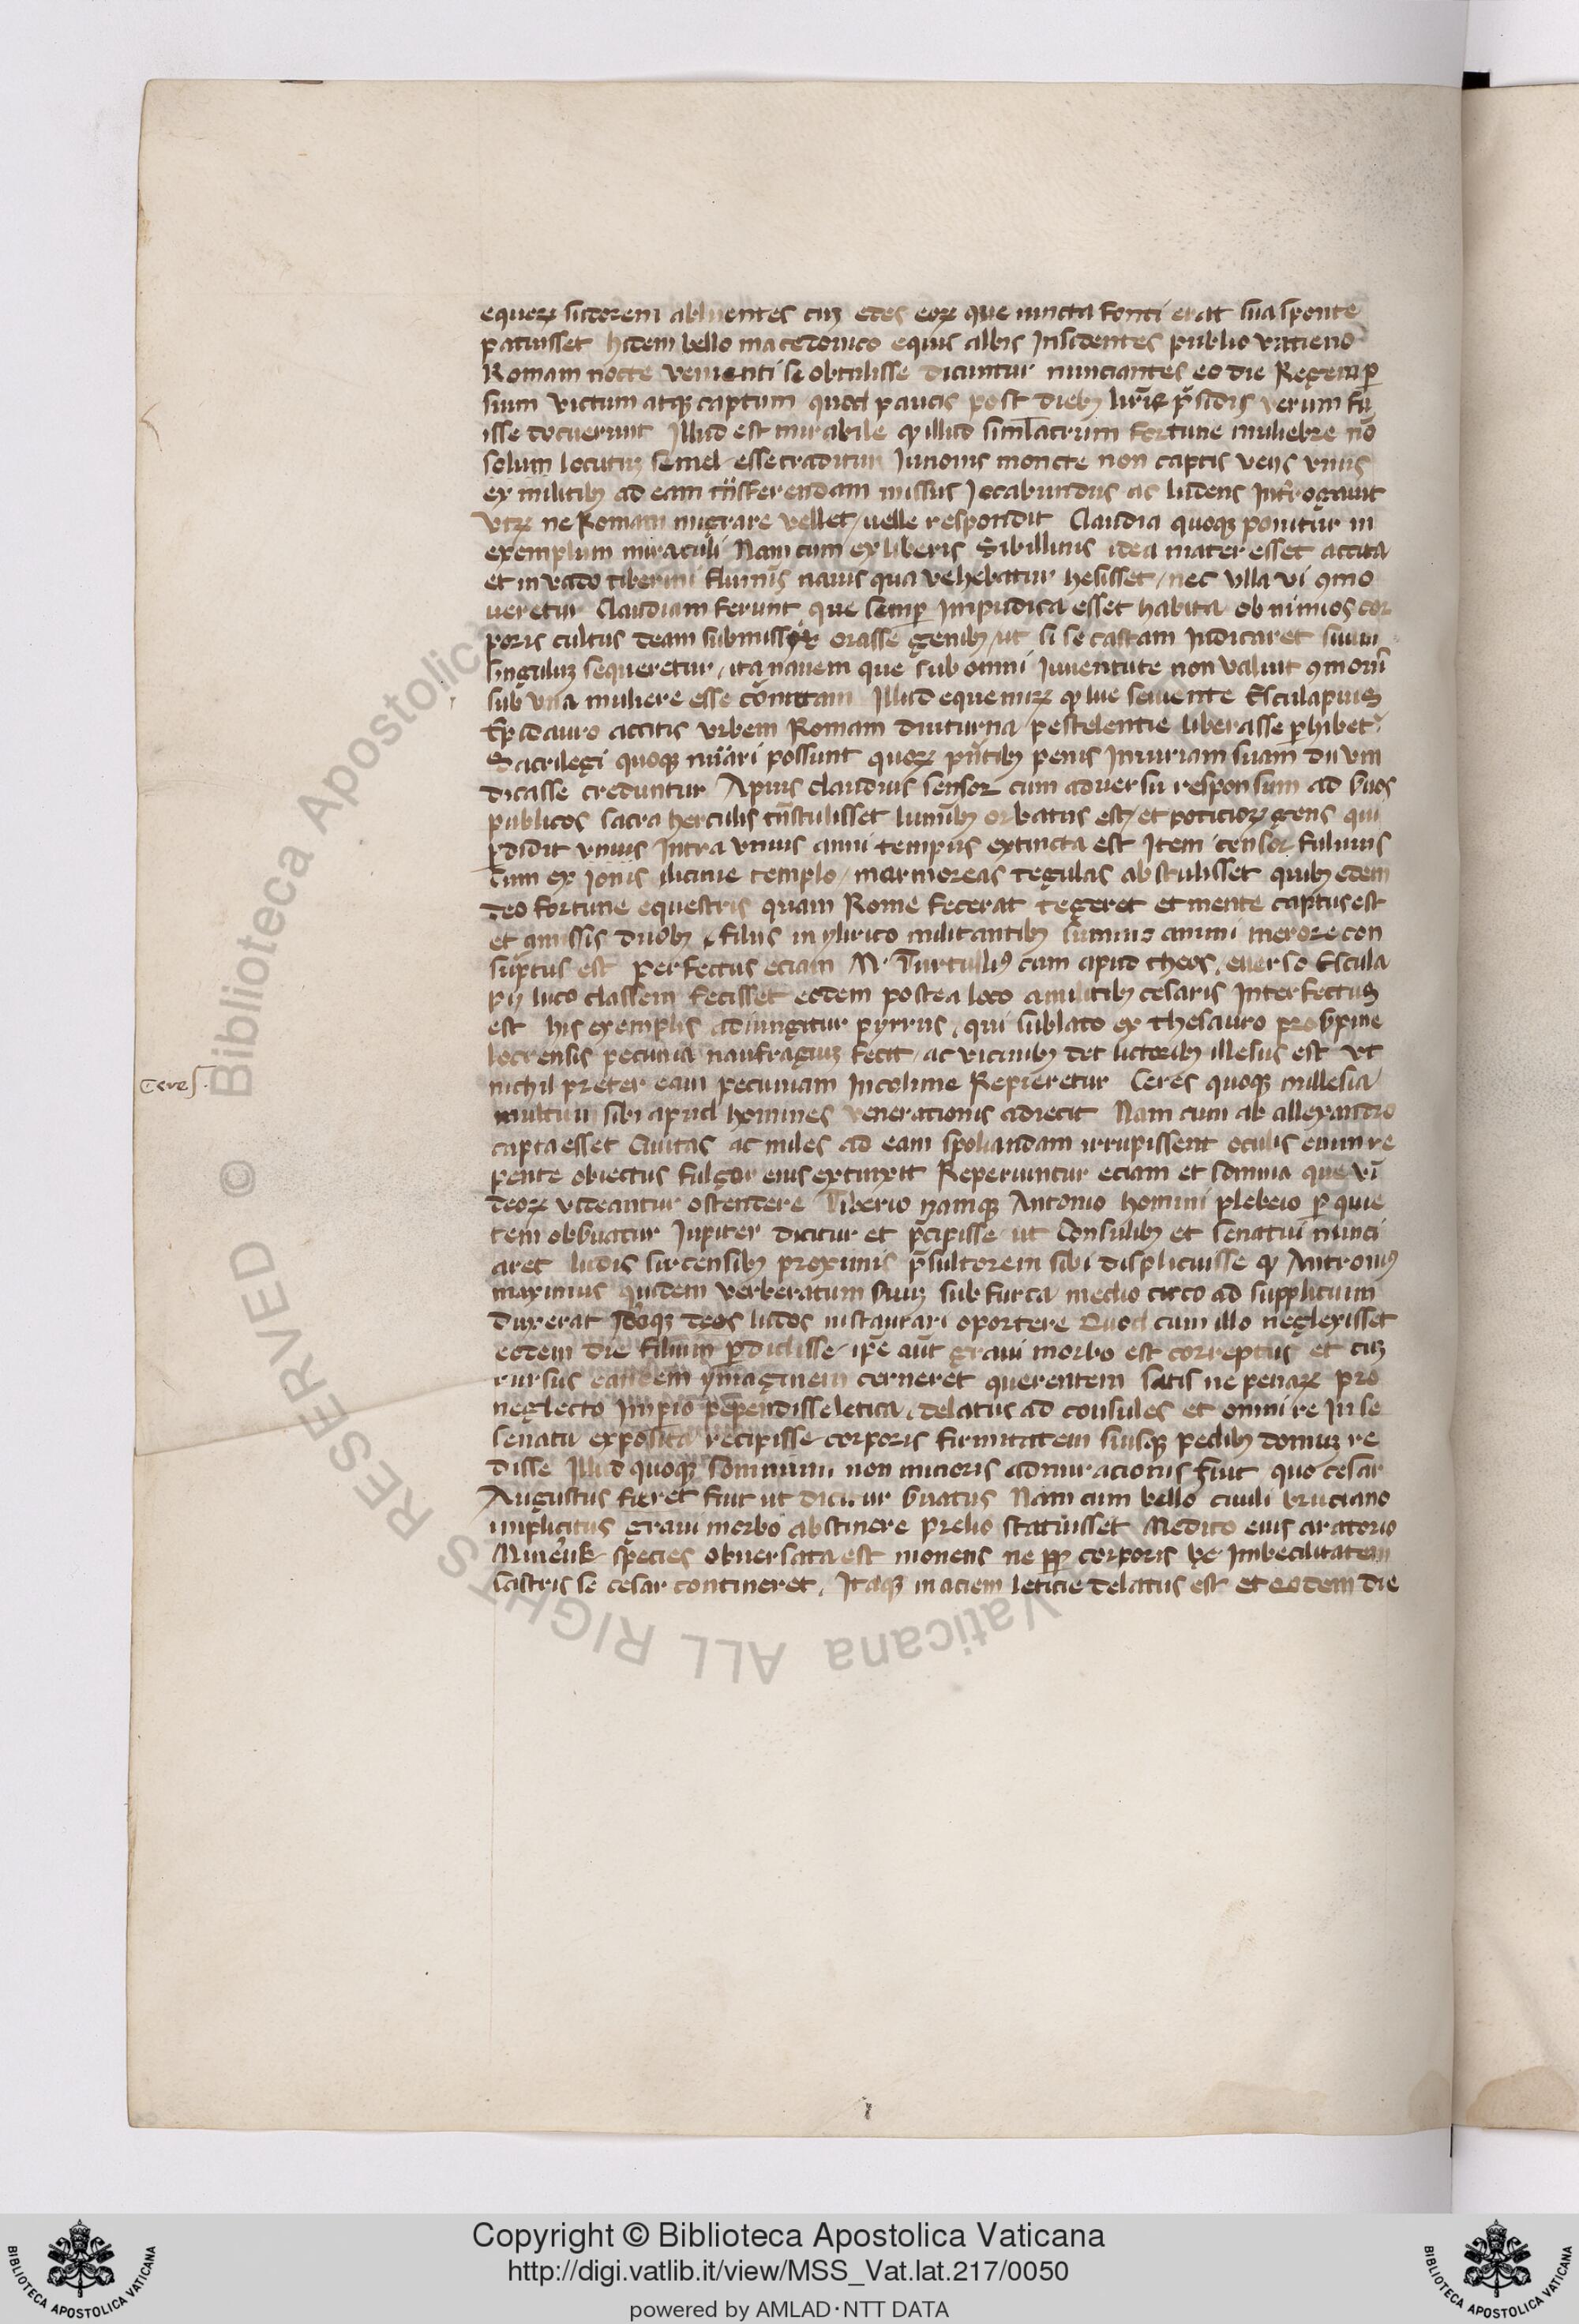 equoꝝ sudorem abluentes cuꝫ edes eoꝝ que iuncta fonti erat sua sponte
patuisset hidem bello macedonico equis albis Insidentes publio vatieno
Romam nocte venienti se obtulisse dicuntur nunciantes eo die Regem ꝑ
sium victum atqꝫ captum quod paucis post diebꝫ verum fu
isse docuerunt Illud est mirabile ꝙ illud siml̄acrum fortune muliebre nō
solum locutuꝫ semel esse traditur Iunonis moncte non captis veiis vnus
ex militibꝫ ad eam missus Iocabundus ac ludens Int̄rogauit
vtꝝ ne Romam migrare vellet / uelle respondit Claudia quoqꝫ ponitur in
exemplum miraculi Nam cum ex liberis Sibillinis idea mater esset accita
et in vado tiberini flumīs nauis qua vehebatur hesisset / nec vlla vi ꝯmo
ueretur Claudiam ferunt que semꝑ Impudica esset habita ob nimios cor
poris cultus deam orasse genibꝫ / ut si se castam Iudicaret suum
singuluꝫ sequeretur / ita nauem que sub omni Iuuentute non valuit ꝯmoueri
sub vna muliere esse Illud eque miꝝ ꝙ lue seuiente Esculapius
Epidauro accitis vrbem Romam diuturna pestelentie liberasse ꝑhibet᷑
Sacrilegi quoqꝫ possunt quoꝝ penis Iniuriam suam dii vin
dicasse creduntur Apius claudius sensor cum aduersu responsum ad suos
publicos sacra herculis lumībꝫ orbatus est / et poticioꝝ gens qui
ꝑdidit vnius Intra vnius anni tempus extincta est Item censor fuluius
cum ex Iouis licinie templo / marmoreas tegulas abstulisset quibꝫ edem
deo fortune equestris quam Rome fecerat tegeret et mente captus est
et amissis duobꝫ filiis in ylirico militantibꝫ summo animi merore con
suptus est perfectus eciam M. Turtulliꝰ cum apud theos, euerso Escula
pii luco classem fecisset eodem postea loco a militibꝫ cesaris Interfectus
est his exemplis adiungitur pyrrus, qui sublato ex thesauro
locrensis pecunia naufragiuꝫ fecit / ac vicinibꝫ det lictoribꝫ illesus est vt
nichil preter eam pecuniam Incolime Repieretur Ceres quoqꝫ millesia
Ceres.
multum sibi apud homines venerationis adiecit Nam cum ab allexandro
capta esset Ciuitas ac miles ad eam spoliandam irrupissent oculis eium re
pente obiectus fulgor eius extinxit Reperiuntur eciam et somnia que vī
deoꝝ videantur ostendere Tiberio namqꝫ Antonio homini plebeio ꝑ quie
tem obbuatur Iupiter dicitur et p̄cipisse ut Consulibꝫ et senatui nunci
aret ludis sircensibꝫ proximis p̄sultorem sibi displicuisse ꝙ Antroniꝰ
maximus quidem verberatum suuꝫ sub furca medio circo ad supplicium
duxerat Ideoqꝫ deos ludos instaurari oportere Quod cum illo neglexisset
eodem die filium ꝑdidisse / ip̄e aut̄ graui morbo est correptus et cuꝫ
rursus eandem ymaginem cerneret querentem satis ne penaꝝ pro
neglecto Impio pependisse letica, delatus ad consules et omni re In se
senatu exposita recipisse corporis firmitatem suisqꝫ pedibꝫ domuꝫ re
disse Illud quoqꝫ somnium non mitioris admiracionis fiut quo cesar
Augustus fieret fiut ut dicitur suatus Nam cum bello ciuili bruciano
implicitus graui morbo abstinere prelio statuisset Medico eius aratorio
species obuersata est monens ne corporis Imbecilitatem
castris se cesar contineret, Itaqꝫ in aciem leticie delatus est et eodem die
Copyright © Biblioteca Apostolica Vaticana
http://digi.vatlib.it/view/MSS_Vat.lat.217/0050
powered by AMLAD·NTT DATA
BIBLIOTECA APOSTOLICA VATICANA
BIBLIOTECA APOSTOLICA VATICANA
© Biblioteca Apostolica Vaticana ALL RIGHTS RESERVED